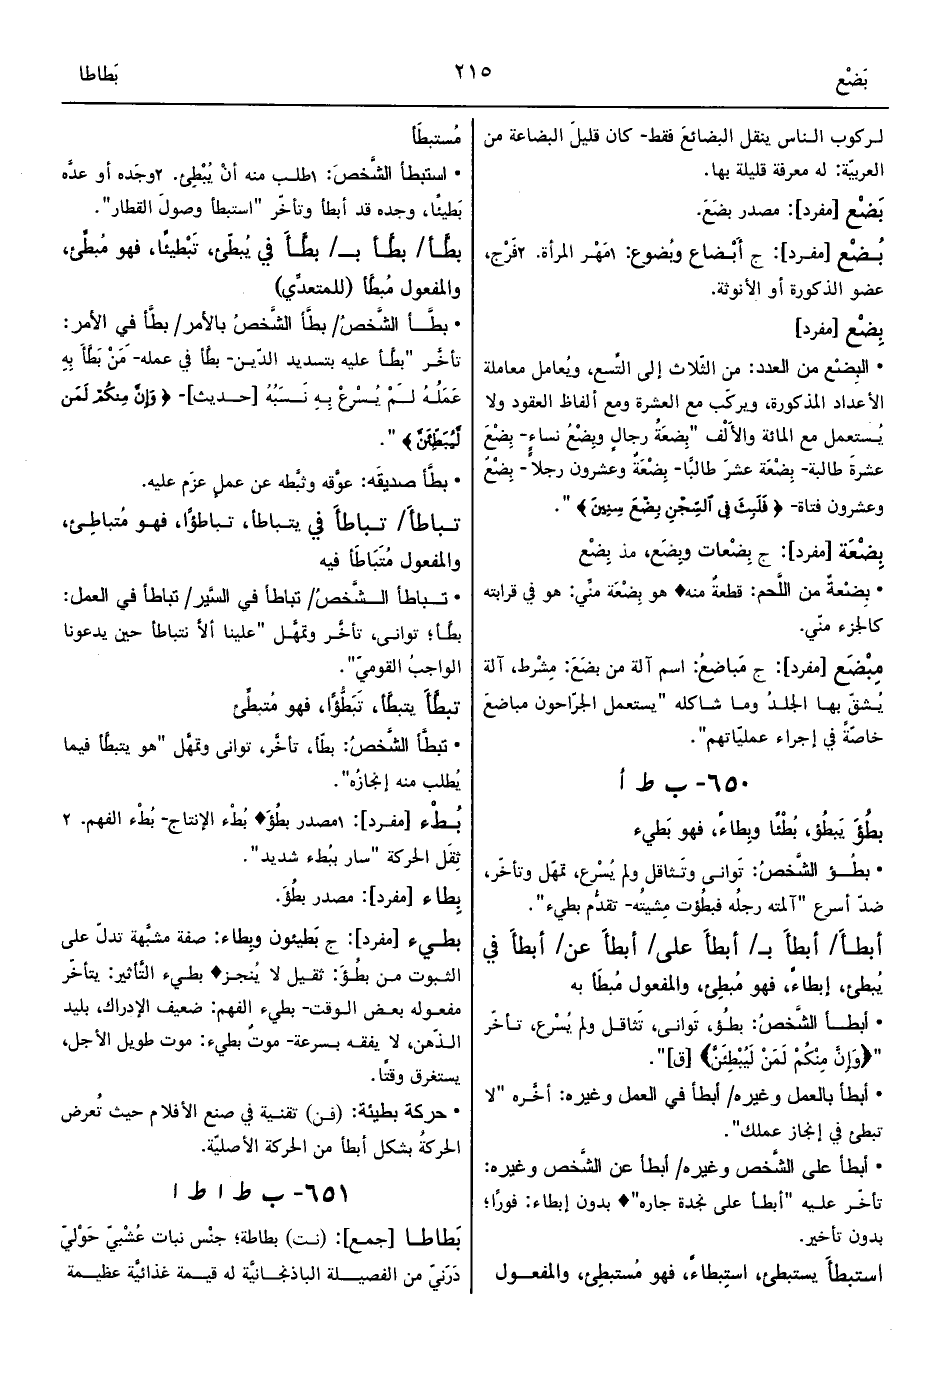 بَضْع
٢١٥
بَطاطا
لركوب الناس ينقل البضائعَ فقط- كان قليلَ البضاعة من
العربيّة: له معرفة قليلة بها.
بَضْع [مفرد]: مصدر بضَعَ.
بُضْع [مفرد]: ج أَبْضاع وبُضوع: ١مَهْر المرأة. ٢فَرْج،
عضو الذكورة أو الأنوثة.
بِضْع [مفرد]
• البِضْع من العدد: من الثّلاث إلى التّسع، ويُعامل معاملة
الأعداد المذكورة، ويركّب مع العشرة ومع ألفاظ العقود ولا
يُستعمل مع المائة والأَلْف "بِضعَةُ رجالٍ وبِضْعُ نساءٍ- بِضْعَ
عشرةَ طالبة- بِضْعَة عشرَ طالبًا- بِضْعَةٌ وعشرون رجلاً- بِضْعٌ
وعشرون فتاة- ﴿ فَلَبِثَ فِي ٱلسِّجْنِ بِضْعَ سِنِينَ ﴾ ".
بِضْعَة [مفرد]: ج بِضْعات وبِضَع، مذ بِضْع
• بِضْعةٌ من اللَّحم: قطعةٌ منه♦ هو بِضْعَة منّي: هو في قرابته
كالجزء منّي.
مِبْضَع [مفرد]: ج مَباضعُ: اسم آلة من بضَعَ: مِشْرط، آلة
يُشقّ بها الجلدُ وما شاكله "يستعمل الجرّاحون مباضعَ
خاصّةً في إجراء عمليّاتهم".
٦٥٠- ب ط أ
بطُؤَ يَبطُؤ، بُطْئًا وبِطاءً، فهو بَطيء
• بطُؤ الشَّخصُ: تَوانى وتَثاقل ولم يُسْرع، تمهّل وتأخّر،
ضدّ أسرع "آلمته رجلُه فبطُؤت مِشيتُه- تقدُّم بطيء".
أبطأَ/ أبطأَ بـ/ أبطأَ على/ أبطأَ عن/ أبطأَ في
يُبطئ، إبطاءً، فهو مُبطِئ، والمفعول مُبطَأ به
• أبطأ الشَّخصُ: بطُؤ، تَوانى، تَثاقل ولم يُسْرع، تأخّر
"﴿وَإِنَّ مِنْكُمْ لَمَنْ لَيُبْطِئَنَّ﴾ [ق]".
• أبطأ بالعمل وغيره/ أبطأ في العمل وغيره: أخّره "لا
تبطئ في إنجاز عملك".
• أبطأ على الشَّخص وغيره/ أبطأ عن الشَّخص وغيره:
تأخّر عليه "أبطأ على نجدة جاره"♦ بدون إبطاء: فورًا؛
بدون تأخير.
استبطأَ يستبطئ، استِبطاءً، فهو مُستبطِئ، والمفعول
مُستبطَأ
• استبطأ الشَّخصَ: ١طلب منه أنْ يُبْطِئ. ٢وجَده أو عدَّه
بَطيئًا، وجده قد أبطأ وتأخّر "استبطأ وصولَ القطار".
بطَّأَ/ بطَّأَ بـ/ بطَّأَ في يُبطّئ، تَبْطيئًا، فهو مُبطِّئ،
والمفعول مُبطَّأ (للمتعدِّي)
• بطَّأ الشَّخصُ/ بطَّأ الشَّخصُ بالأمر/ بطَّأ في الأمر:
تأخَّر "بطَّأ عليه بتسديد الدّين- بطَّأ في عمله- مَنْ بَطَّأَ بِهِ
عَمَلُهُ لَمْ يُسْرِعْ بِهِ نَسَبُهُ [حديث]- ﴿ وَإِنَّ مِنكُمْ لَمَن
لَّيُبَطِّئَنَّ ﴾ ".
• بطَّأ صديقَه: عوَّقه وثبَّطه عن عملٍ عزَم عليه.
تباطأَ/ تباطأَ في يتباطأ، تباطؤًا، فهو مُتباطِئ،
والمفعول مُتَبَاطَأ فيه
• تباطأ الشَّخصُ/ تباطأ في السَّيْر/ تباطأ في العمل:
بطَّأ؛ توانى، تأخَّر وتمهَّل "علينا ألاَّ نتباطأ حين يدعونا
الواجبُ القوميّ".
تبطَّأَ يتبطَّأ، تَبَطُّؤًا، فهو مُتبطِّئ
• تبطَّأ الشَّخصُ: بطَّأ، تأخَّر، توانى وتمهَّل "هو يتبطَّأ فيما
يُطلب منه إنجازُه".
بُطْء [مفرد]: ١مصدر بطُؤَ♦ بُطْء الإنتاج- بُطْء الفهم. ٢
ثِقَل الحركة "سار ببُطء شديد".
بِطاء [مفرد]: مصدر بطُؤَ.
بطيء [مفرد]: ج بَطيئون وبِطاء: صفة مشبَّهة تدلّ على
الثبوت من بطُؤَ: ثقيل لا يُنجز♦ بطيء التَّأثير: يتأخّر
مفعوله بعض الوقت- بطيء الفهم: ضعيف الإدراك، بليد
الذّهن، لا يفقه بسرعة- موتٌ بطيء: موت طويل الأجل،
يستغرق وقتًا.
• حركة بطيئة: (فن) تقنية في صنع الأفلام حيث تُعرض
الحركةُ بشكل أبطأ من الحركة الأصليّة.
٦٥١- ب ط ا ط ا
بَطاطا [جمع]: (نت) بطاطة؛ جنْس نبات عُشْبيّ حَوْليّ
دَرَنيّ من الفصيلة الباذنجانيَّة له قيمة غذائيَّة عظيمة